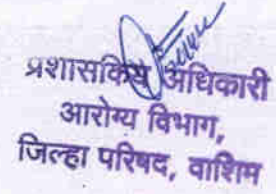 प्रशासकिय अधिकारी
आरोग्य विभाग,
जिल्हा परिषद, वाशिम